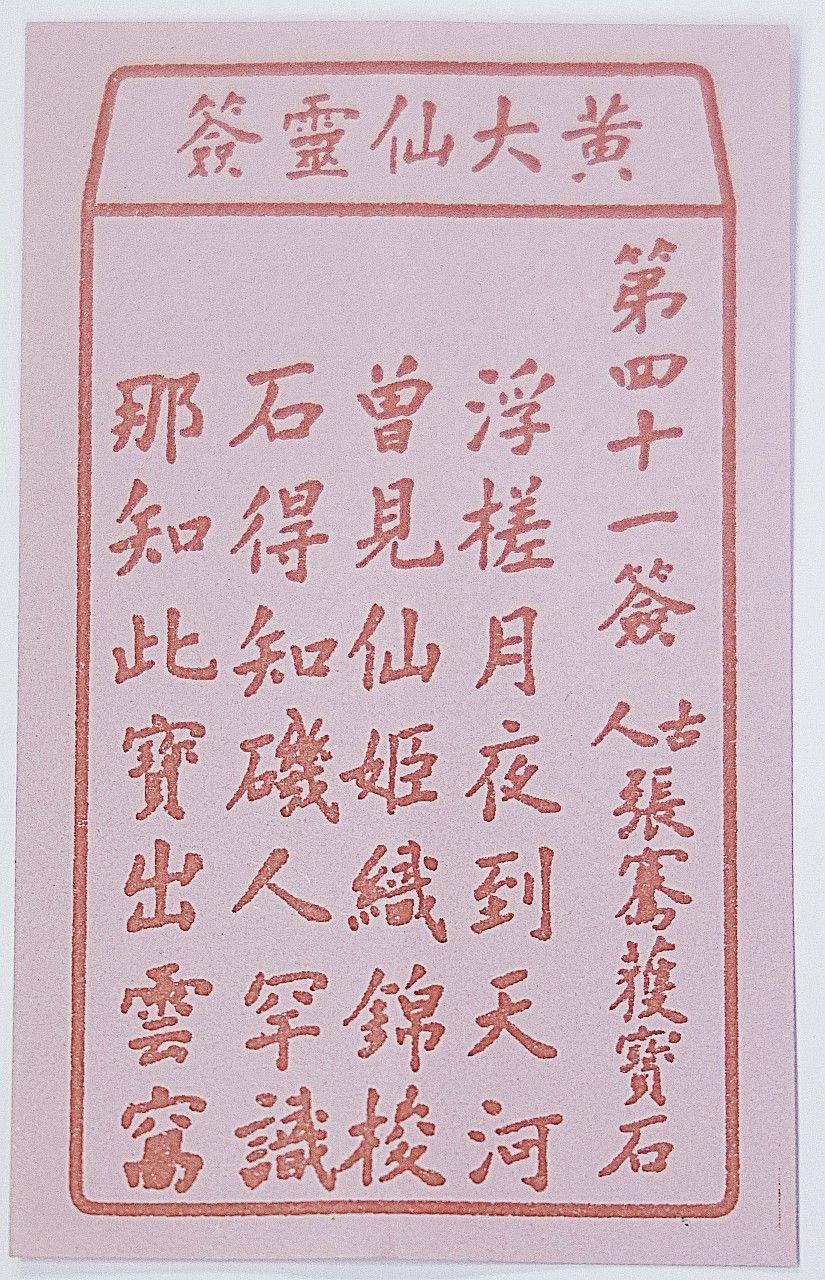 黄大仙靈簽
第四十一簽 古人 張騫獲寶石
浮槎月夜到天河
曾見仙姬織錦梭
石得知磯人罕識
那知此寶出雲窩